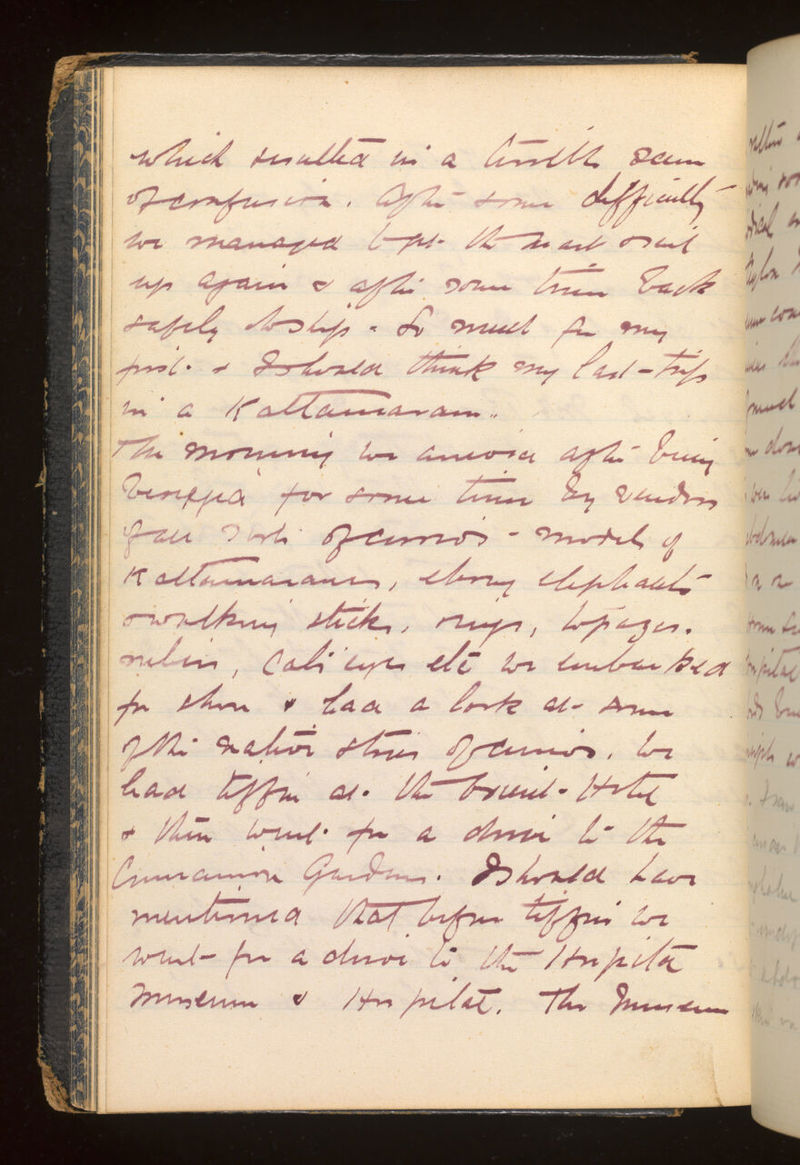 which resulted in a terrible scene
of confusion. After some difficulty
we managed to get the mast & sail
up again & after some time back
safely to ship. So much for my
first & I should think my last trip
in a Kattamaram.
This morning we
after being
besieged for some time by vendors
of all sorts of curios - models of
Kattamarams, ebony elephants
& walking sticks, rings, topazes,
rubies, Cats eyes etc we embarked
for shore & had a look at some
of the native stores of curios. We
had tiffin at the Orient Hotel
& then went for a drive to the
Cinnamon Gardens. I should have
mentioned that before tiffin we
went for a drive to the Hospital
Museum & Hospital. The Museum